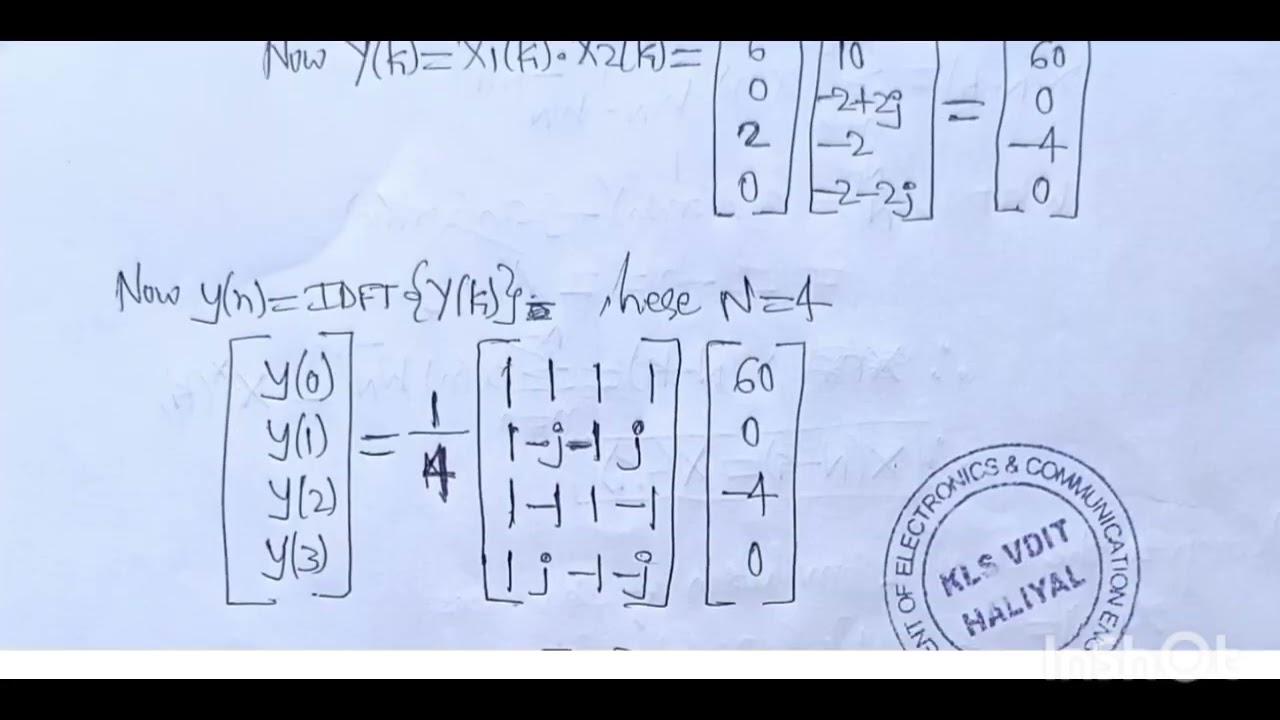 Now Y(k)=X1(k)·X2(k)= [6 0 2 0] [10 -2+2j -2 -2-2j] = [60 0 -4 0]
Now y(n)=IDFT{Y(k)}= , here N=4
y(0) 1 1 1 1 60
y(1) = 1/4 1 -j -1 j 0
y(2) 1 -1 1 -1 -4
y(3) 1 j -1 -j 0
OF ELECTRONICS & COMMUNICATION
KLS VDIT
HALIYAL
InShOt